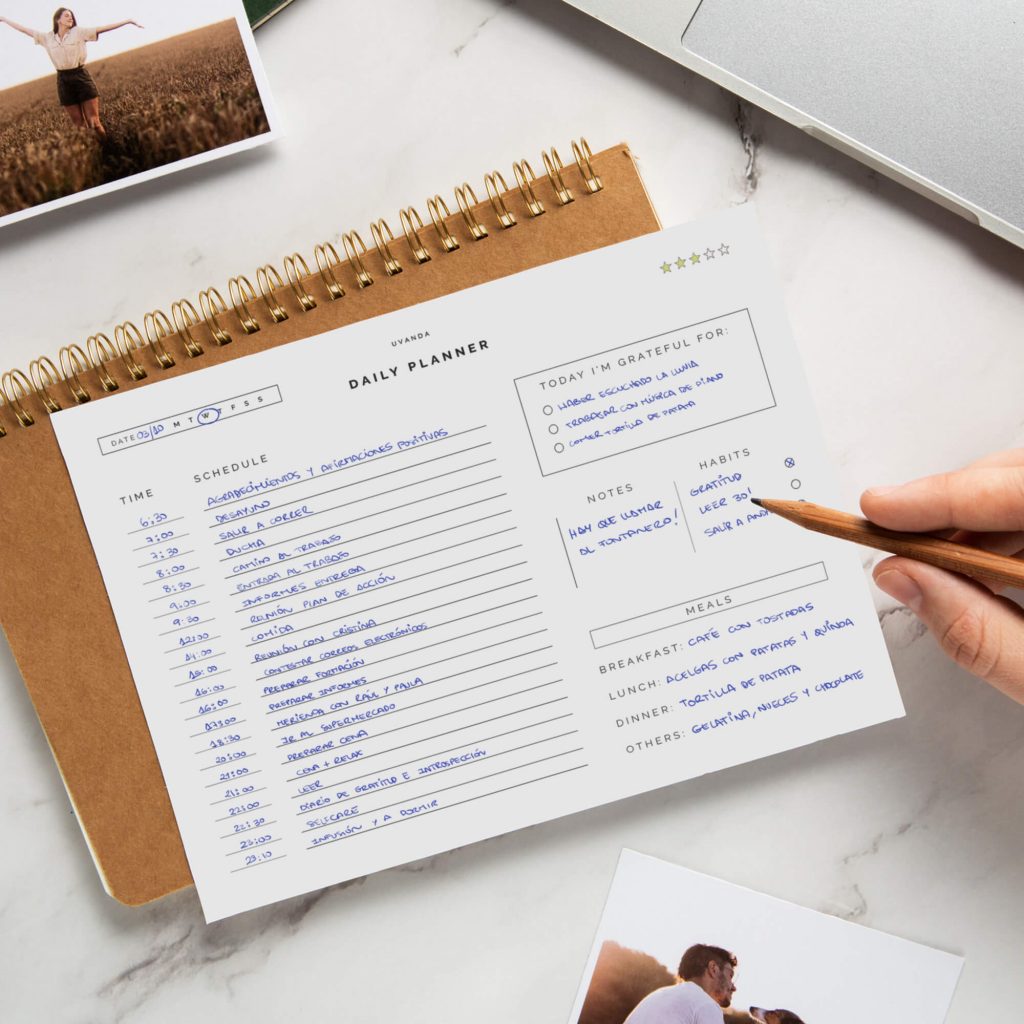 UVANDA
DAILY PLANNER
DATE 03/10 M T W T F S S
TIME SCHEDULE
6:30 AGRADECIMIENTOS Y AFIRMACIONES POSITIVAS
7:00 DESAYUNO
7:30 SALIR A CORRER
8:00 DUCHA
8:30 CAMINO AL TRABAJO
9:00 ENTRADA AL TRABAJO
9:30 INFORMES ENTREGA
12:00 REUNIÓN PLAN DE ACCIÓN
14:00 COMIDA
15:00 REUNIÓN CON CRISTINA
16:00 CONTESTAR CORREOS ELECTRÓNICOS
16:00 PREPARAR FORMACIÓN
17:00 PREPARAR INFORMES
18:30 MERIENDA CON RAÚL Y PAULA
20:00 IR AL SUPERMERCADO
21:00 PREPARAR CENA
21:00 CENA + RELAX
22:00 LEER
22:30 DIARIO DE GRATITUD E INTROSPECCIÓN
23:00 SELFCARE
23:10 INFUSIÓN Y A DORMIR
TODAY I'M GRATEFUL FOR:
HABER ESCUCHADO LA LLUVIA
TRABAJAR CON MÚSICA DE PIANO
COMER TORTILLA DE PATATA
NOTES
HAY QUE LLAMAR
AL FONTANERO!
HABITS
GRATITUD
LEER 30'
SALIR A
MEALS
BREAKFAST: CAFÉ CON TOSTADAS
LUNCH: ACELGAS CON PATATAS Y QUINOA
DINNER: TORTILLA DE PATATA
OTHERS: GELATINA, NUECES Y CHOCOLATE